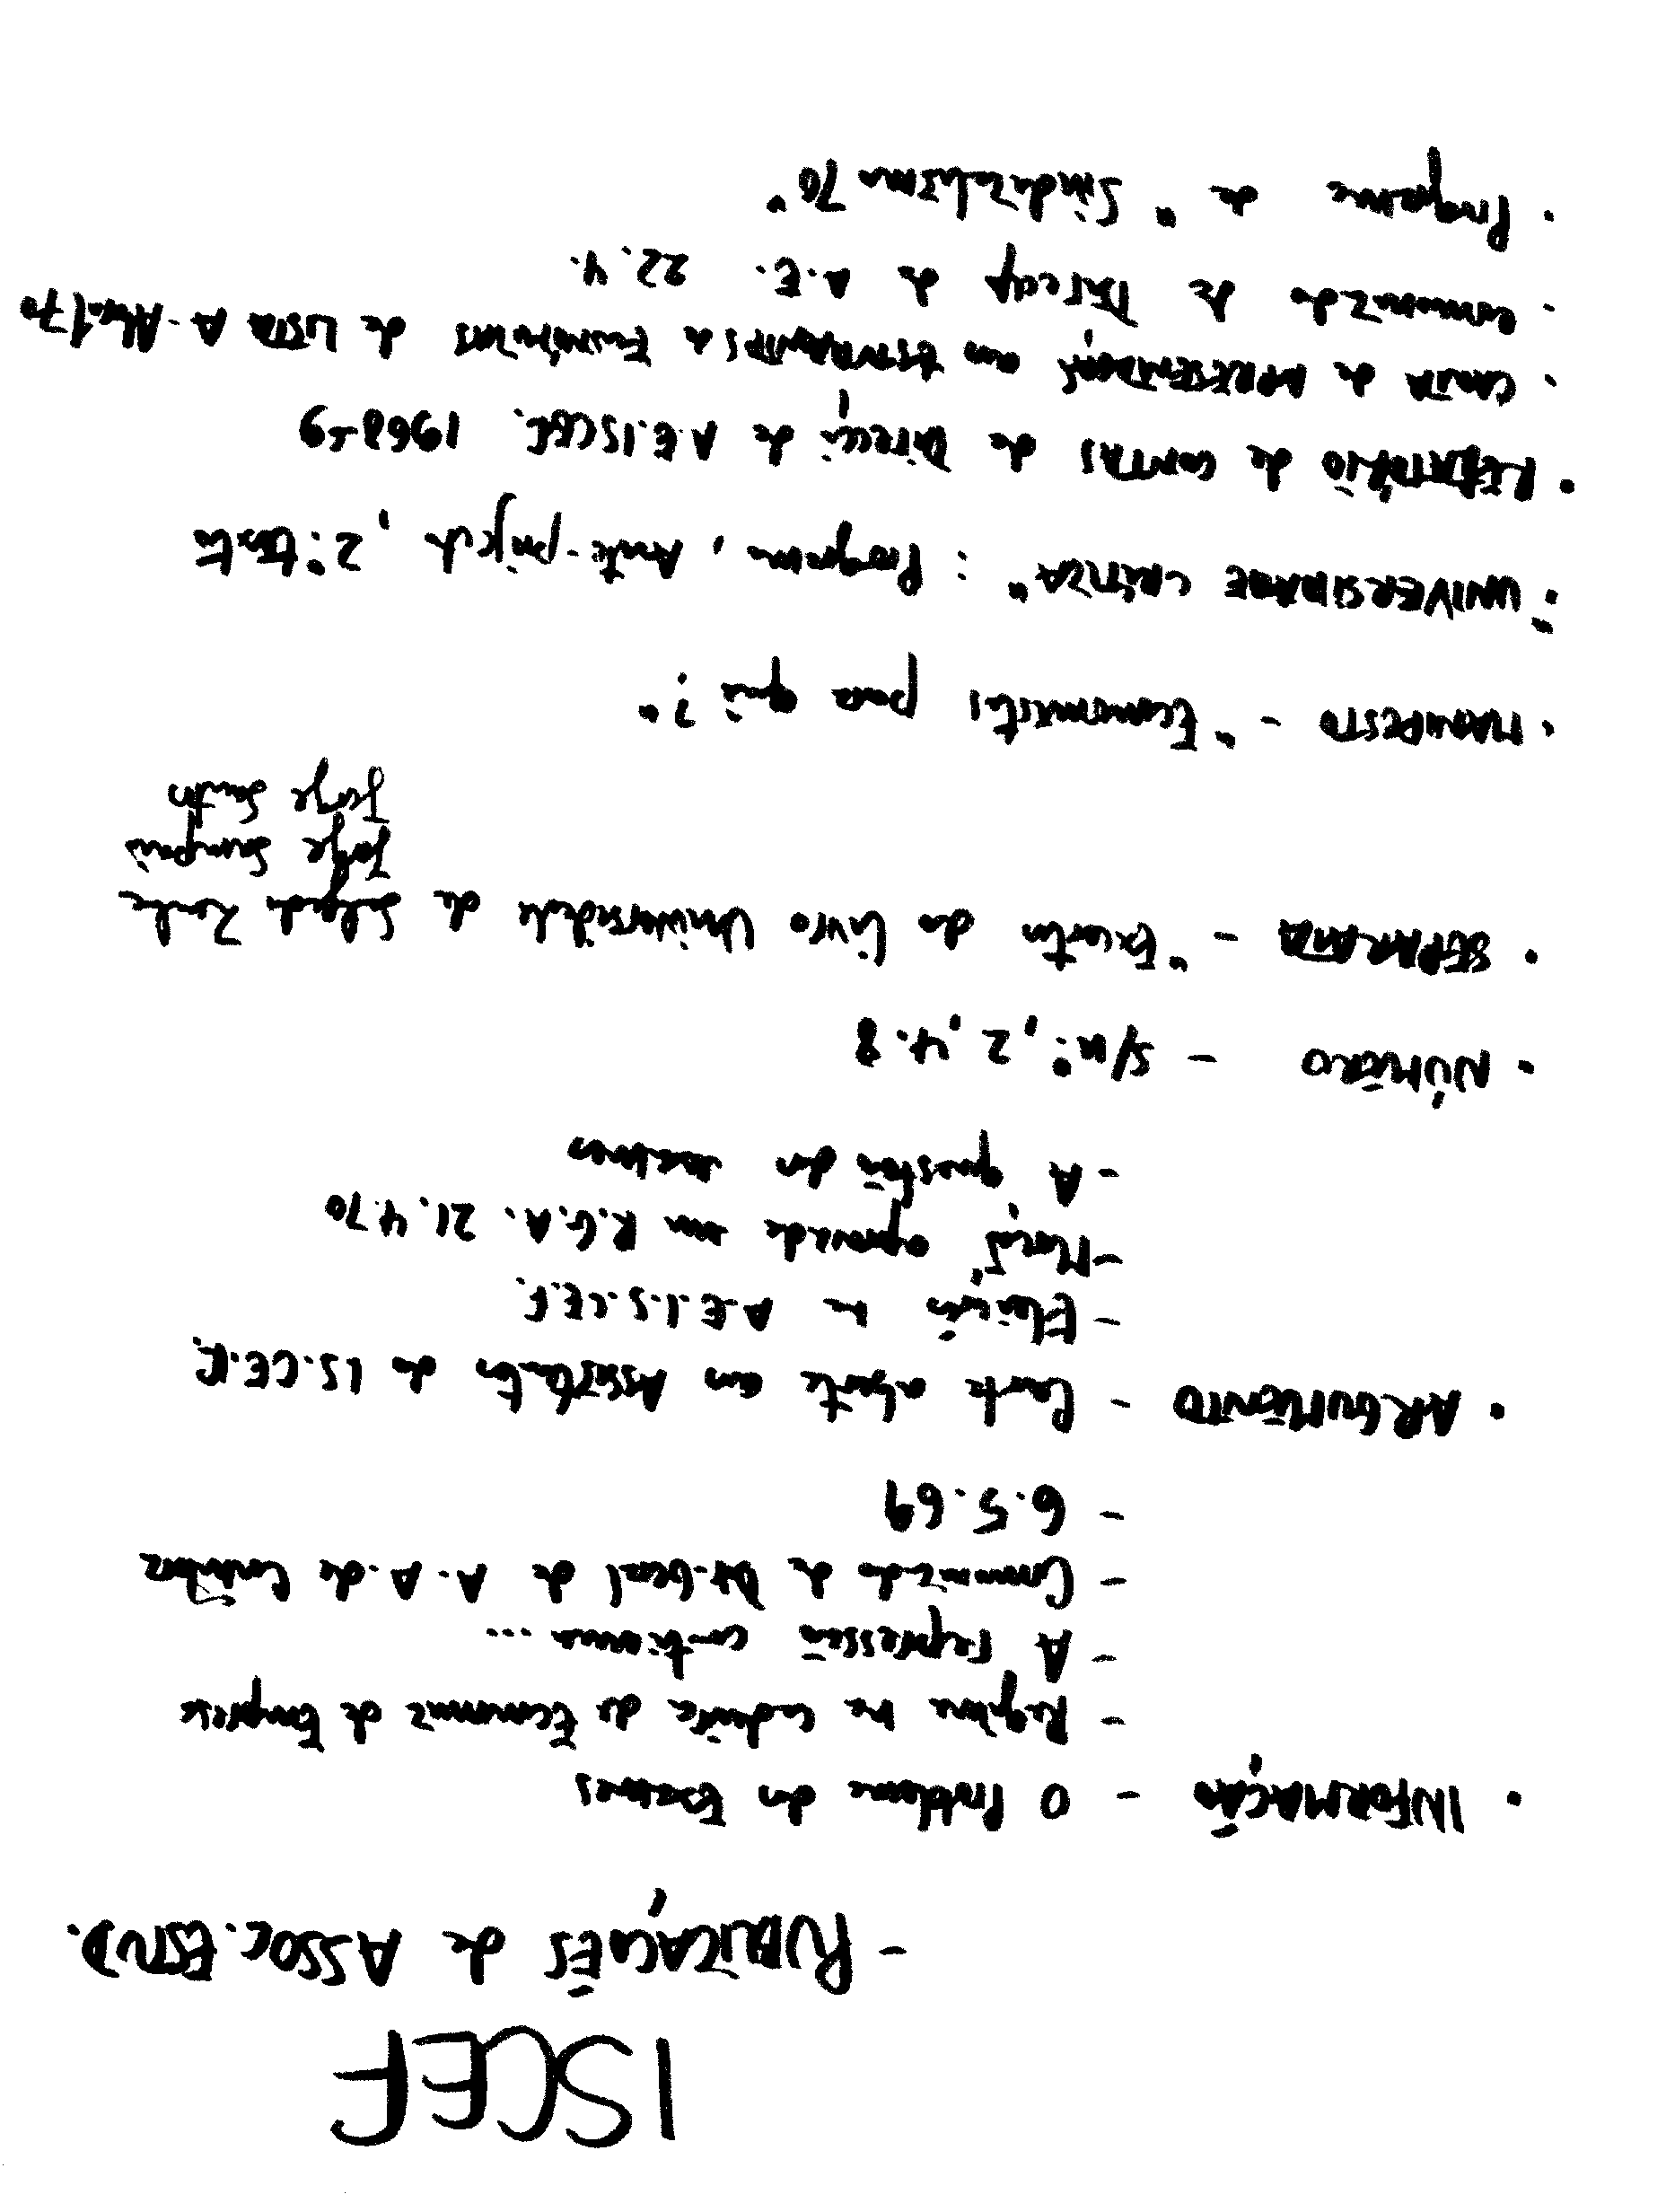 ISCEF
- PUBLICAÇÕES da ASSOC. ESTUD.
• INFORMAÇÃO - O Problema dos Exames
- Regime na cadeira de Economia da Empresa
- A repressão continua...
- Comunicado da Dir-Geral da A.A. de Coimbra
- 6.5.69
• ARGUMENTO - Carta aberta aos Assistentes do I.S.C.E.F.
- Eleições na A.E.I.S.C.E.F.
- Moção aprovada em R.G.A. 21.4.70
- A questão dos exames
• NÚMERO - s/nº, 2, 4, 8
• SEPARATA - "Excertos do livro Universidade de Salgado Zenha
Jorge Sampaio
Jorge Santos
• MANIFESTO - "Economistas para quê?"
• "UNIVERSIDADE CRÍTICA" : Programa, Ante-projecto, 2º texto
• RELATÓRIO de CONTAS da Direcção da A.E.ISCEF. 1968-9
• CARTA de APRESENTAÇÃO aos ESTUDANTES de Económicas da LISTA A - Abril 70
• Comunicado da Direcção da A.E. 22.4.
• Programa de "Sindicalismo 70"